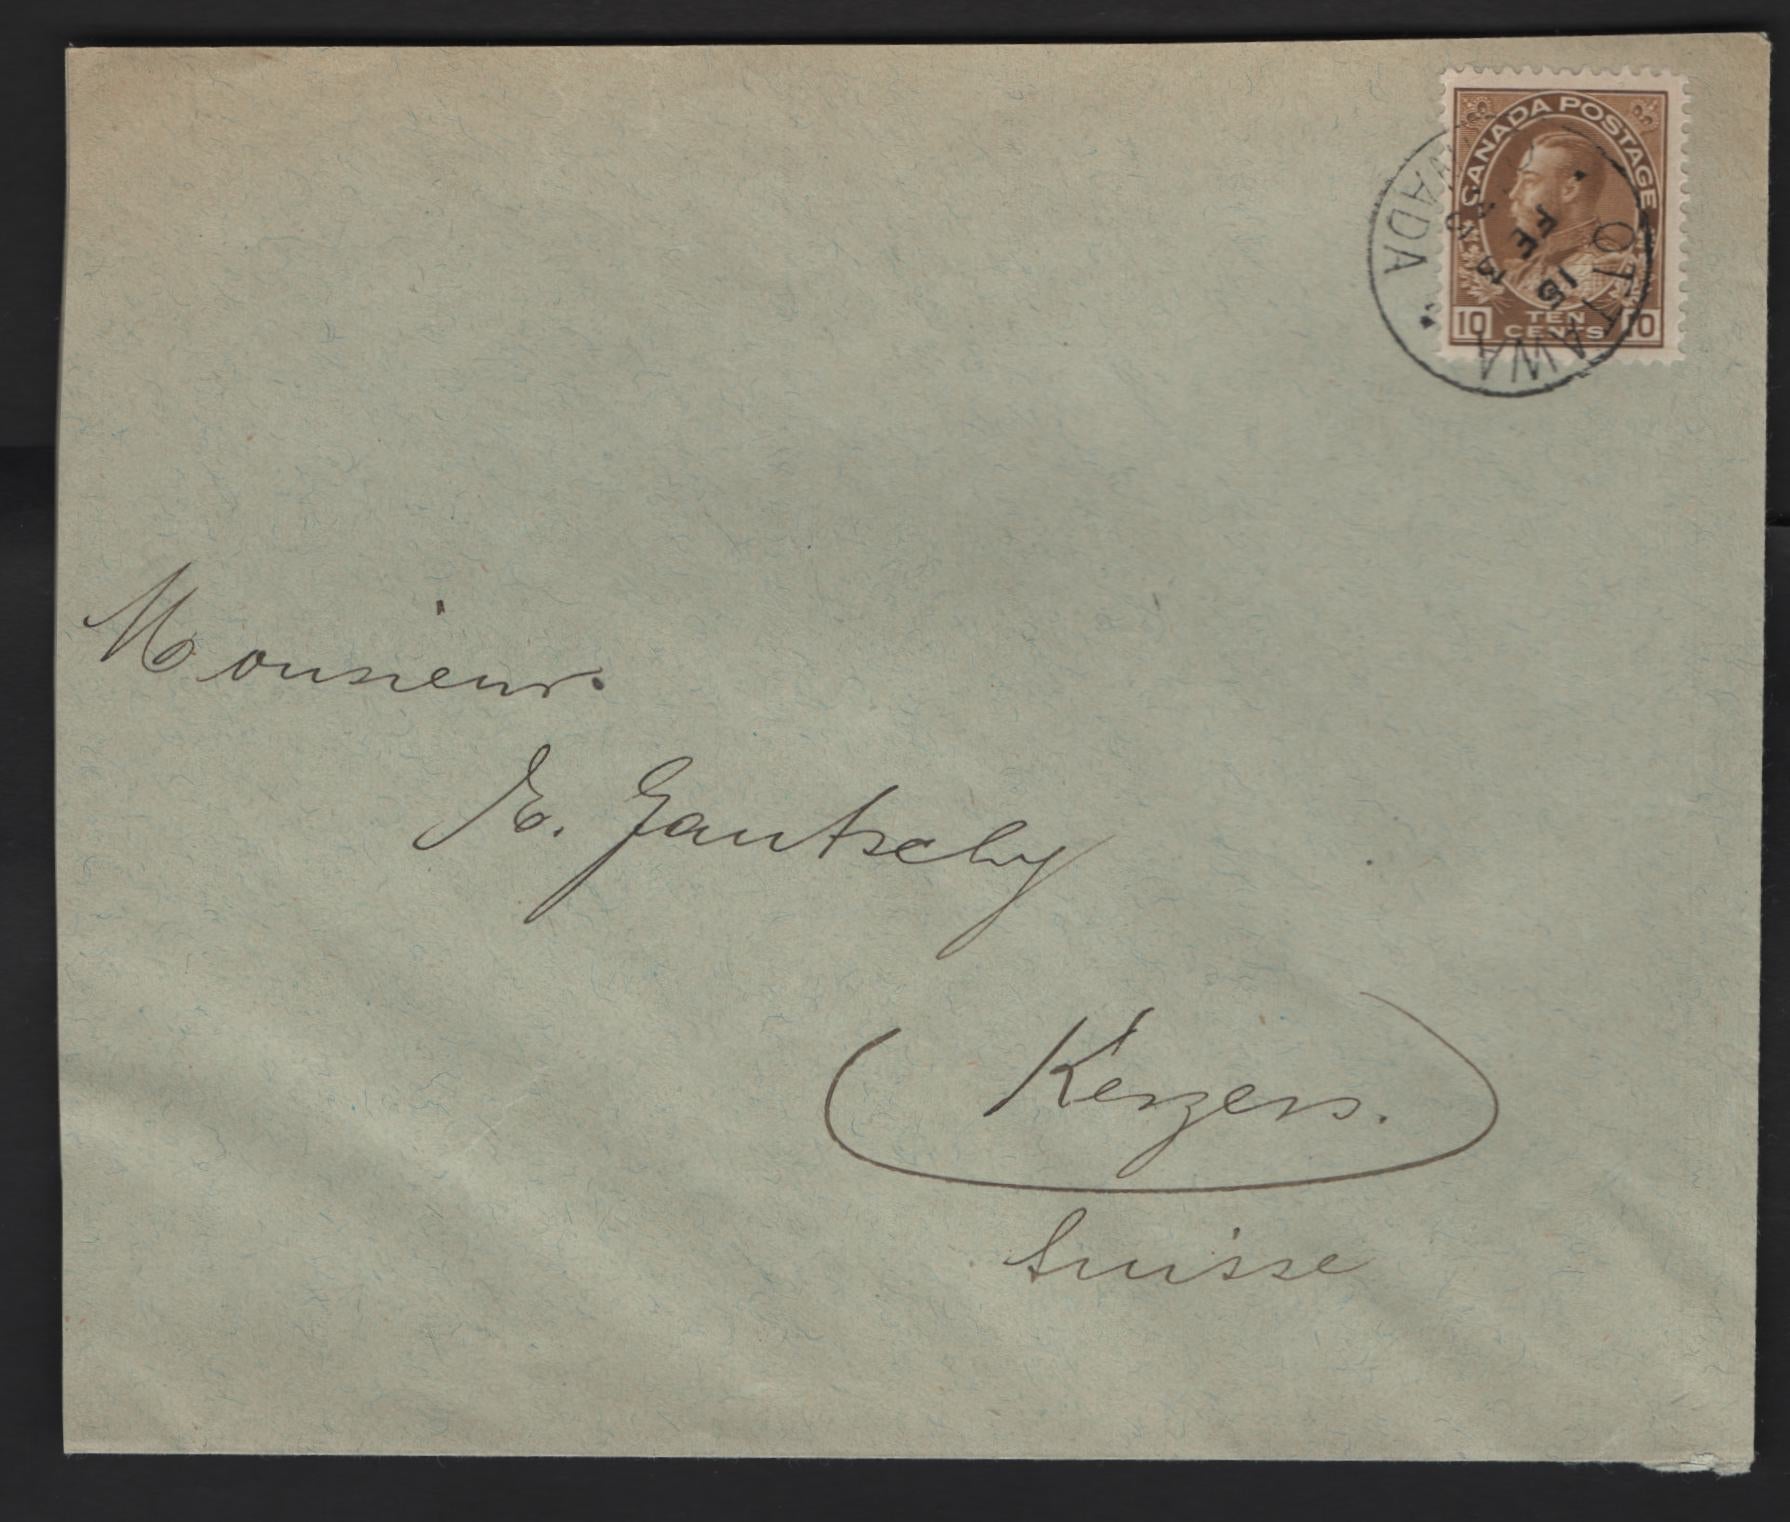 CANADA POSTAGE
10 TEN CENTS 10
OTTAWA
CANADA
FE
Monsieur.
E. Gautschy
Kerzers.
Suisse